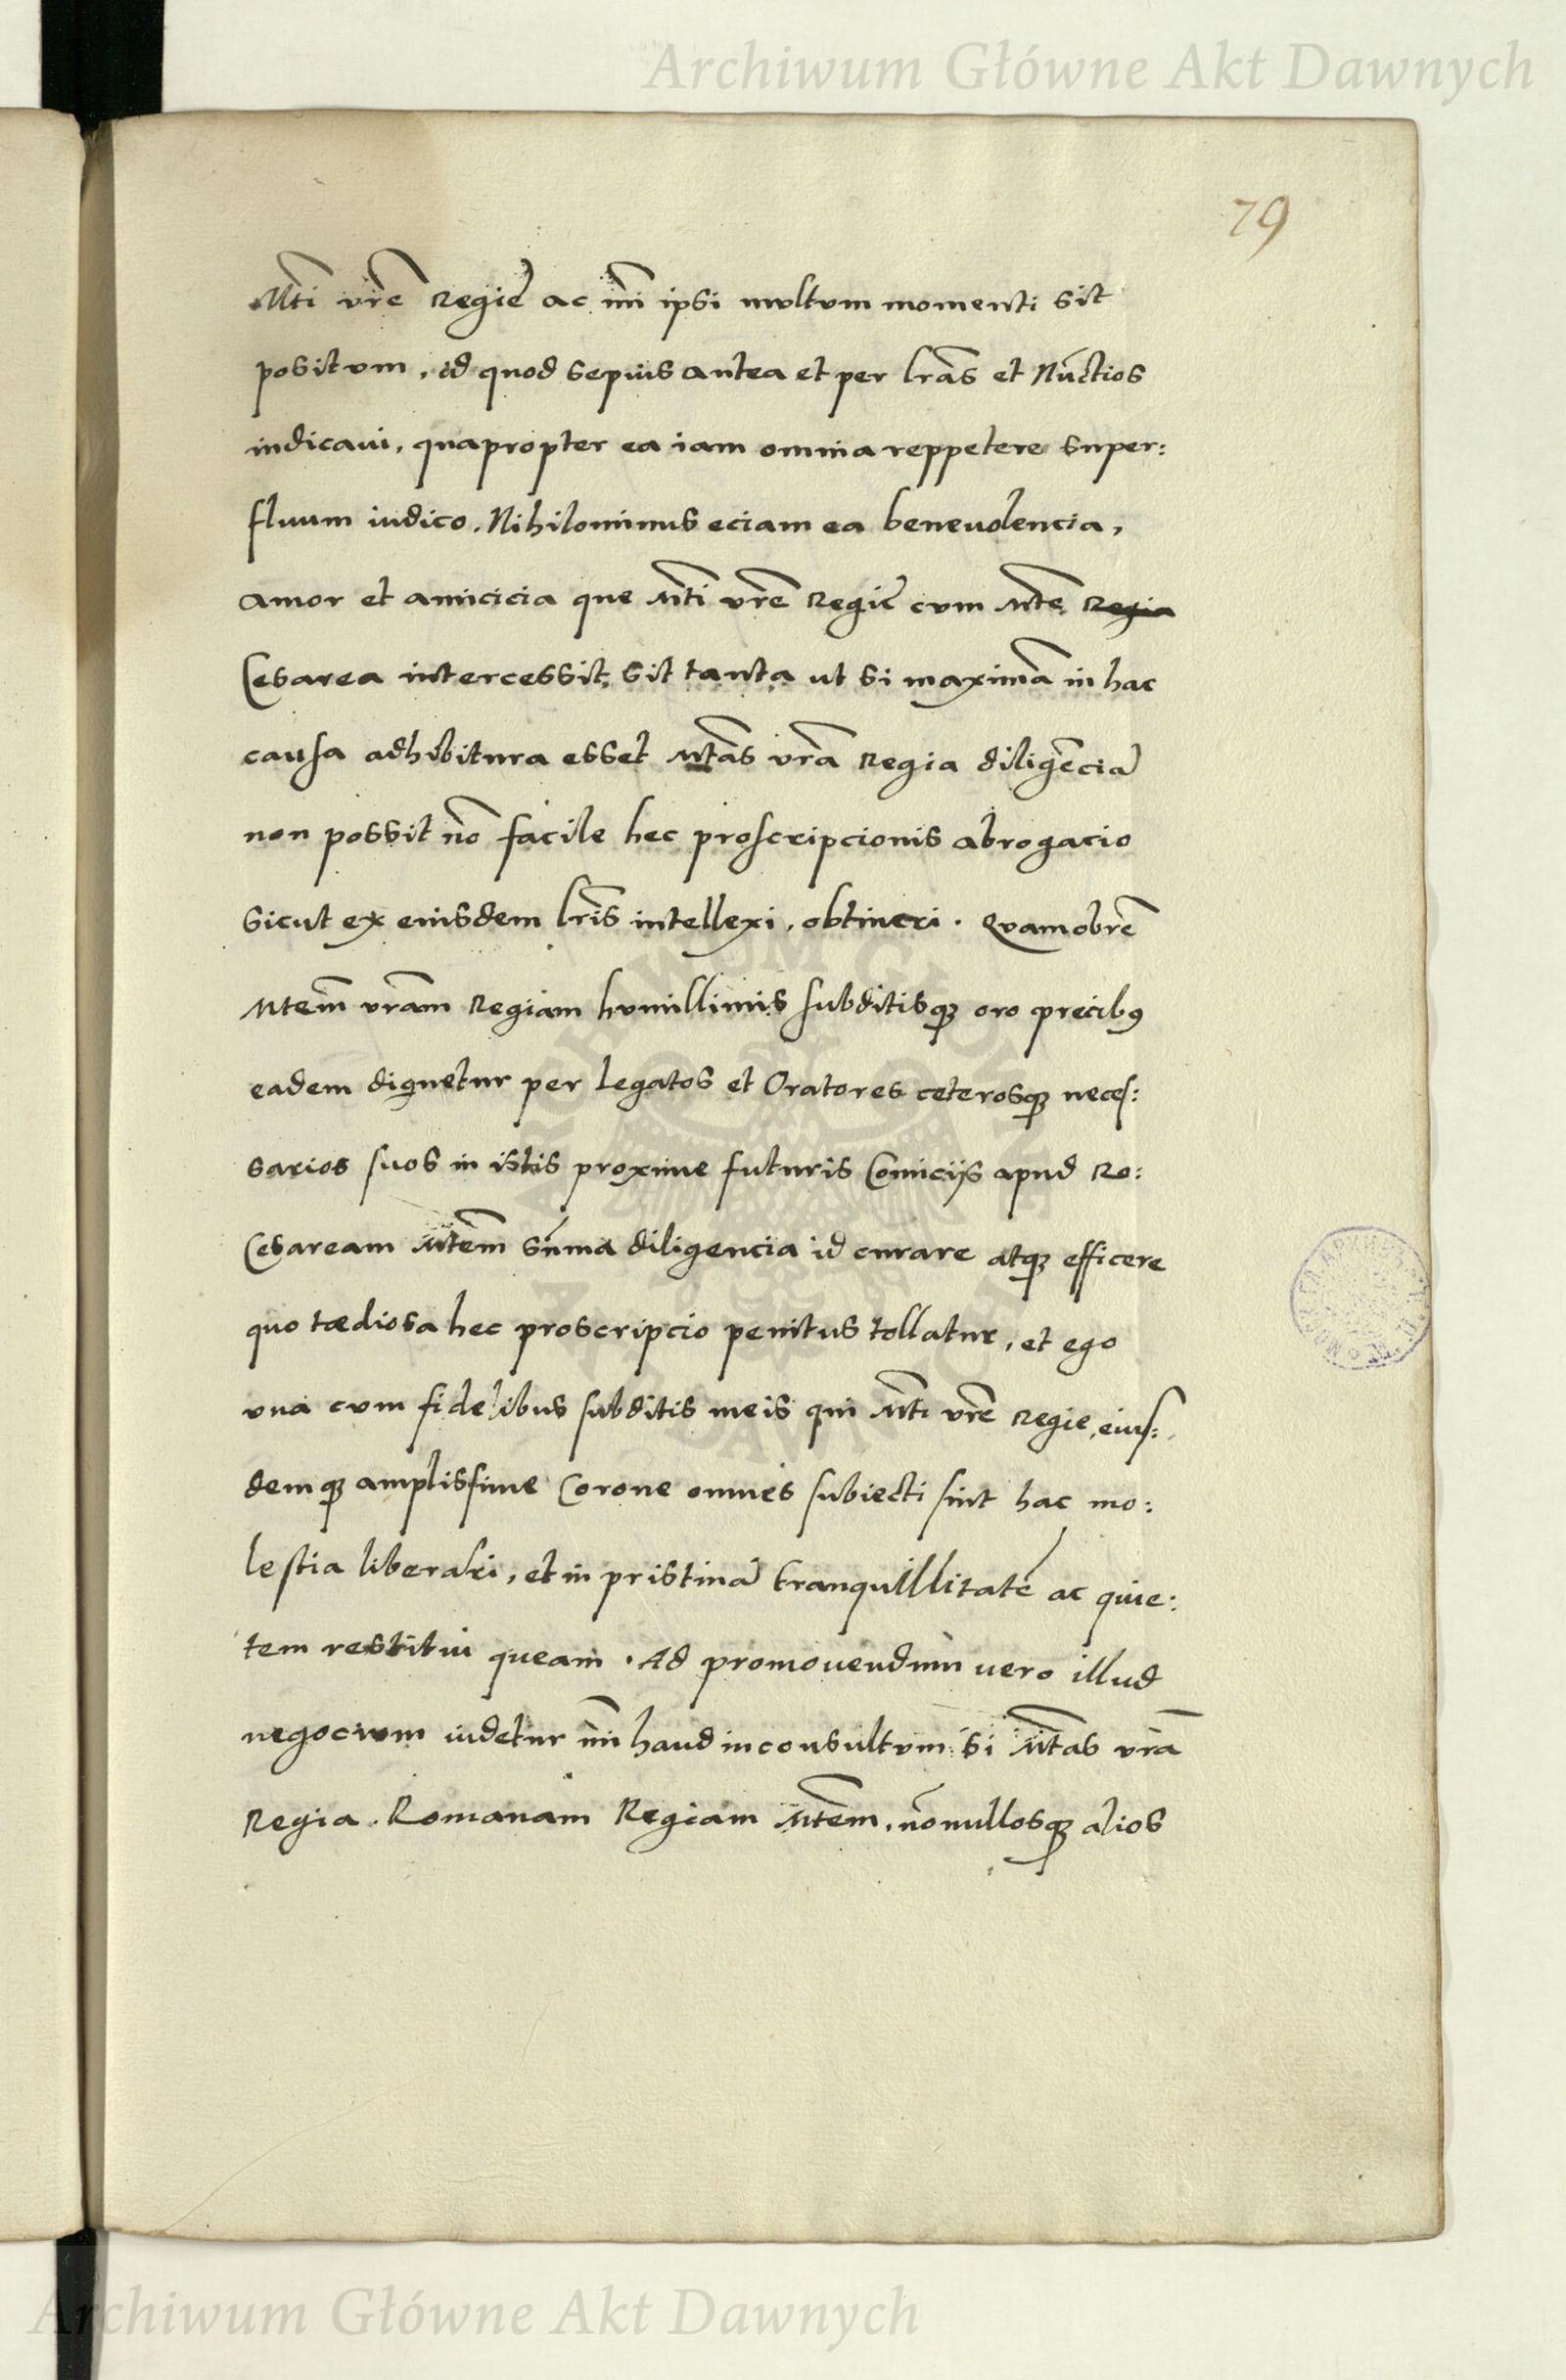 Archiwum Główne Akt Dawnych
79
Mti vre Regie ac mi ipsi multum momenti sit
positum, id quod sepius antea et per lras et Nuctios
indicaui, quapropter ea iam omnia reppetere super:
fluum iudico. Nihilominus eciam ea beneuolencia,
amor et amicicia que Mti vre Regie cum Mte Regia
Cesarea intercessit, sit tanta ut si maxima in hac
causa adhibitura esset Mtas vra Regia diligencia
non possit no facile hec proscripcionis abrogacio
sicut ex eiusdem lris intellexi, obtineri. Quamobre
Mtem vram Regiam humillimis subditisq oro precib9
eadem dignetur per Legatos et Oratores ceterosq neces:
sarios suos in istis proxime futuris Comicijs apud Ro:
Cesaream Mtem suma diligencia id curare atq efficere
quo tædiosa hec proscripcio penitus tollatur, et ego
vna cum fidelibus subditis meis qui Mti vre Regie, eius:
demq amplissime Corone omnes subiecti sint hac mo:
lestia liberari, et in pristina tranquillitate ac quie:
tem restitui queam. Ad promouendum uero illud
negocium uidetur mi haud inconsultum si Mtas vra
Regia. Romanam Regiam Mtem, nonullosq alios
Archiwum Główne Akt Dawnych